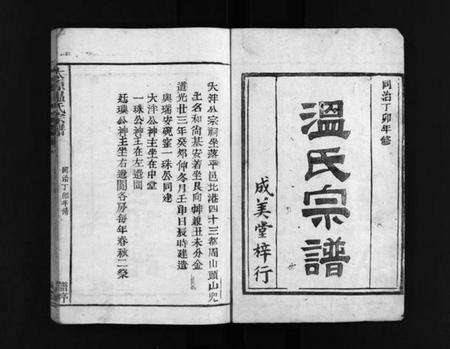 同治丁卯年修
溫氏宗譜
成美堂梓行
大洋公宗祠坐落平邑北港四十三都周山頭山兜
土名和尚基安着坐艮向坤兼丑未分金
道光廿三年癸卯仲冬月壬申日辰時建造
與瑞安硯窰一珠公同建
大洋公神主坐在中堂
一珠公神主在左邊間
廷璵公神主坐右邊間各房每年春秋二祭
同治丁卯年譜
譜序